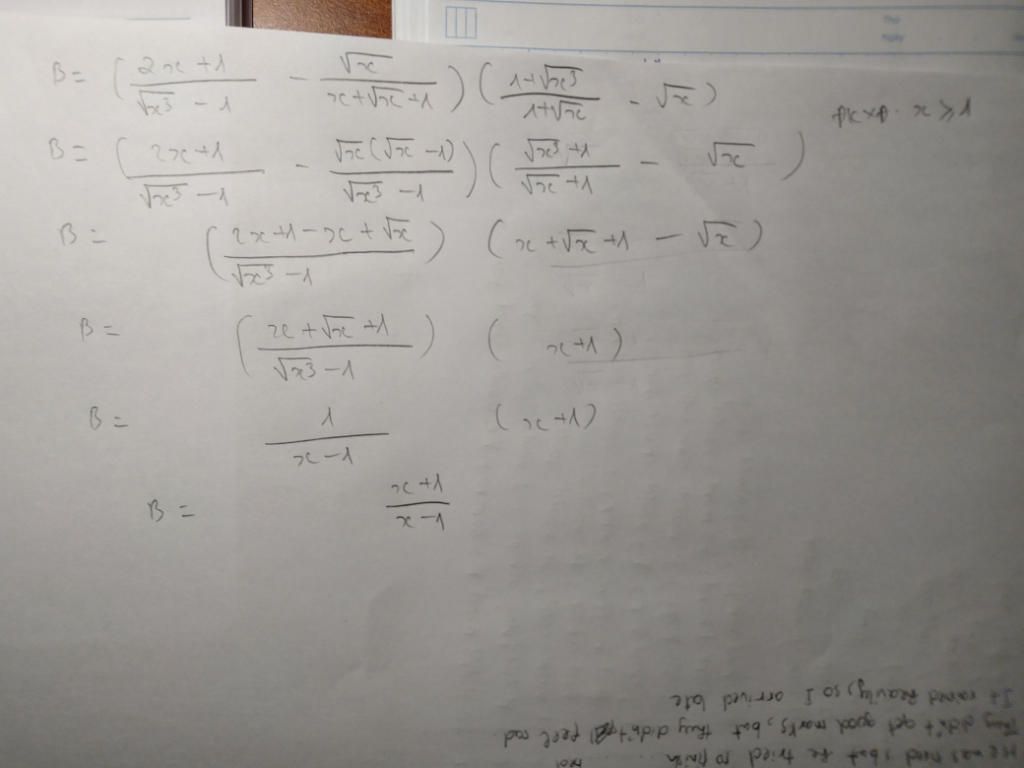 B = ( (2x+1)/(√x³ − 1) − √x/(x+√x+1) ) ( (1+√x³)/(1+√x) − √x )
x ⩾ 1
B = ( (2x+1)/(√x³ − 1) − √x(√x −1)/(√x³ −1) ) ( (√x³ +1)/(√x +1) − √x )
B = ( (2x+1−x+√x)/(√x³ −1) ) ( x+√x+1 − √x )
B = ( (x+√x+1)/(√x³ −1) ) ( x+1 )
B = 1/(x−1) (x+1)
B = (x+1)/(x−1)
He was but he tried to finish
They didn't get good marks, but they didn't feel sad
It rained heavily, so I arrived late